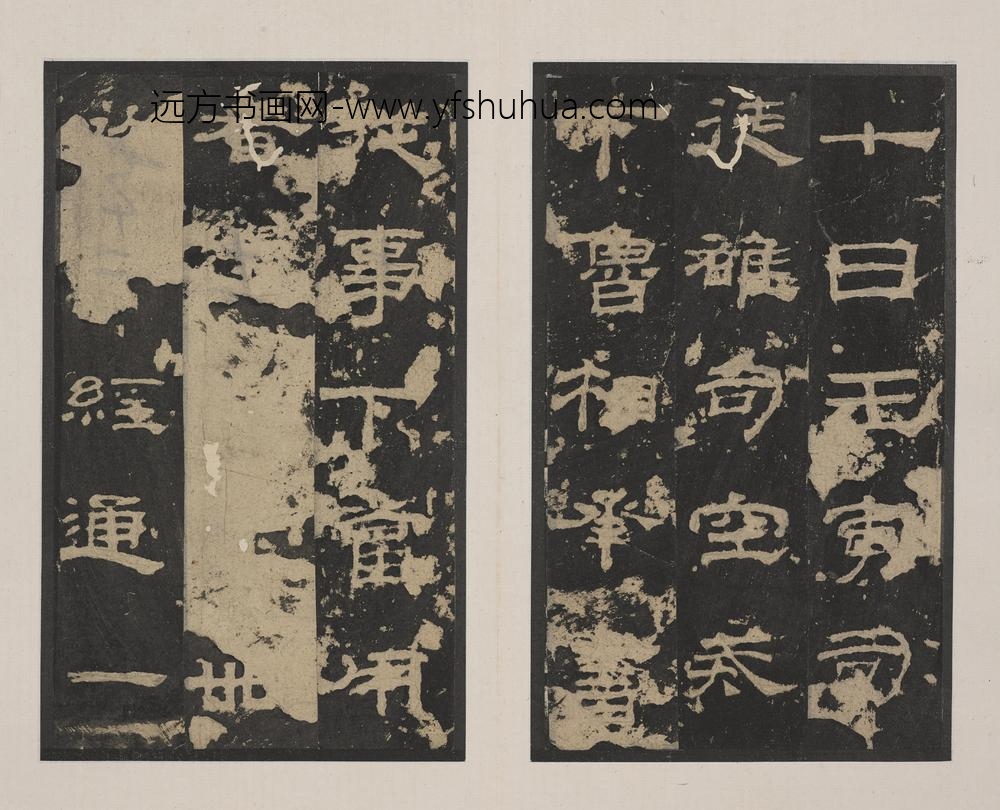 远方书画网-www.yfshuhua.com
七日壬寅司
徒雄司空戒
下魯相承書
從事下當用
者卌
經通一